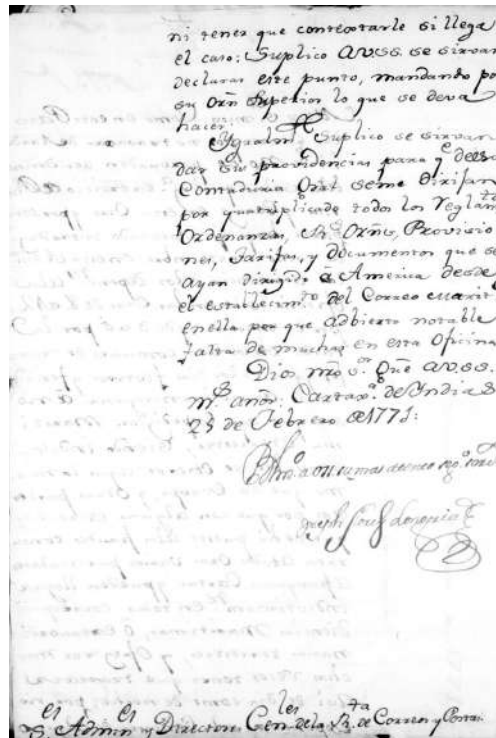 ni tener que contextarle si llega
el caso: Suplico a V.SS. se sirvan
declarar este punto, mandando po
su Orn Superior lo que se deva
hacer.
Ygualm.te Suplico se sirvan
dar sus providencias para q.e de esa
Contaduria Gral seme dirijan
por quatriplicado todos los Reglam.tos
Ordenanzas, R.s Orns, Provisio
nes, Tarifas, y documentos que se
ayan dirigido á America desde
el establecim.to del Correo marit
enella, por que adbierto notable
falta de muchas en esta Oficina
Dios nro S.or Gue a V.SS.
m.s años. Cartax.a de Yndias
23 de Febrero de 1771:
B.l.m. a V.SS. su mas atento seg.o
Joseph
S.es Admin.es y Directores Gen.les de la R.ta de Correos y Postas